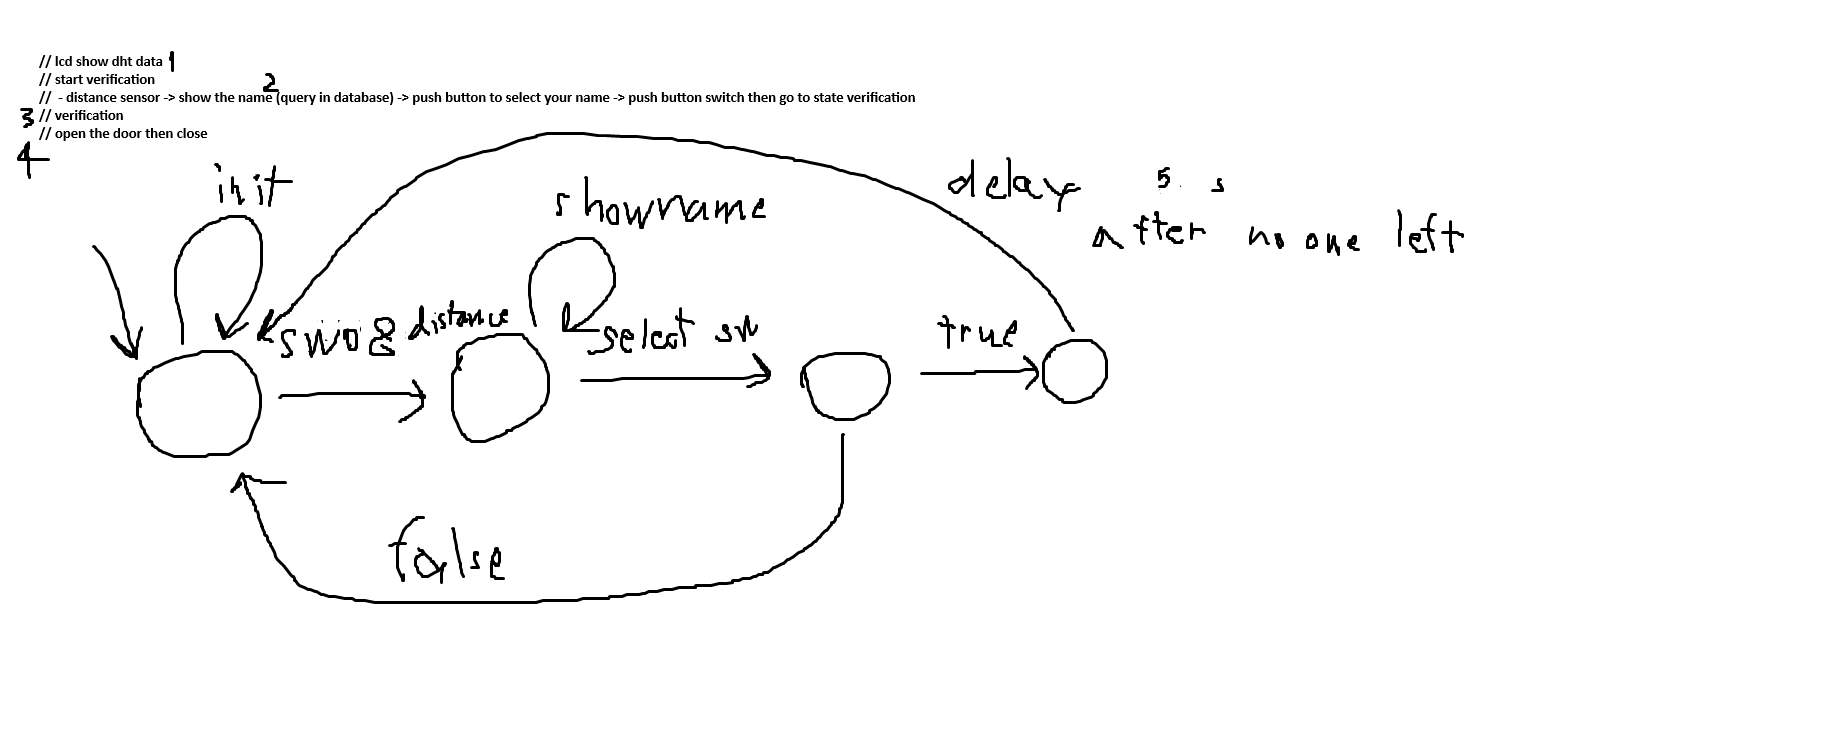 // lcd show dht data 1
// start verification
2
// - distance sensor -> show the name (query in database) -> push button to select your name -> push button switch then go to state verification
3 // verification
// open the door then close
4
init
showname
delay 5. s
after no one left
sw0 & distance
select sw
true
false